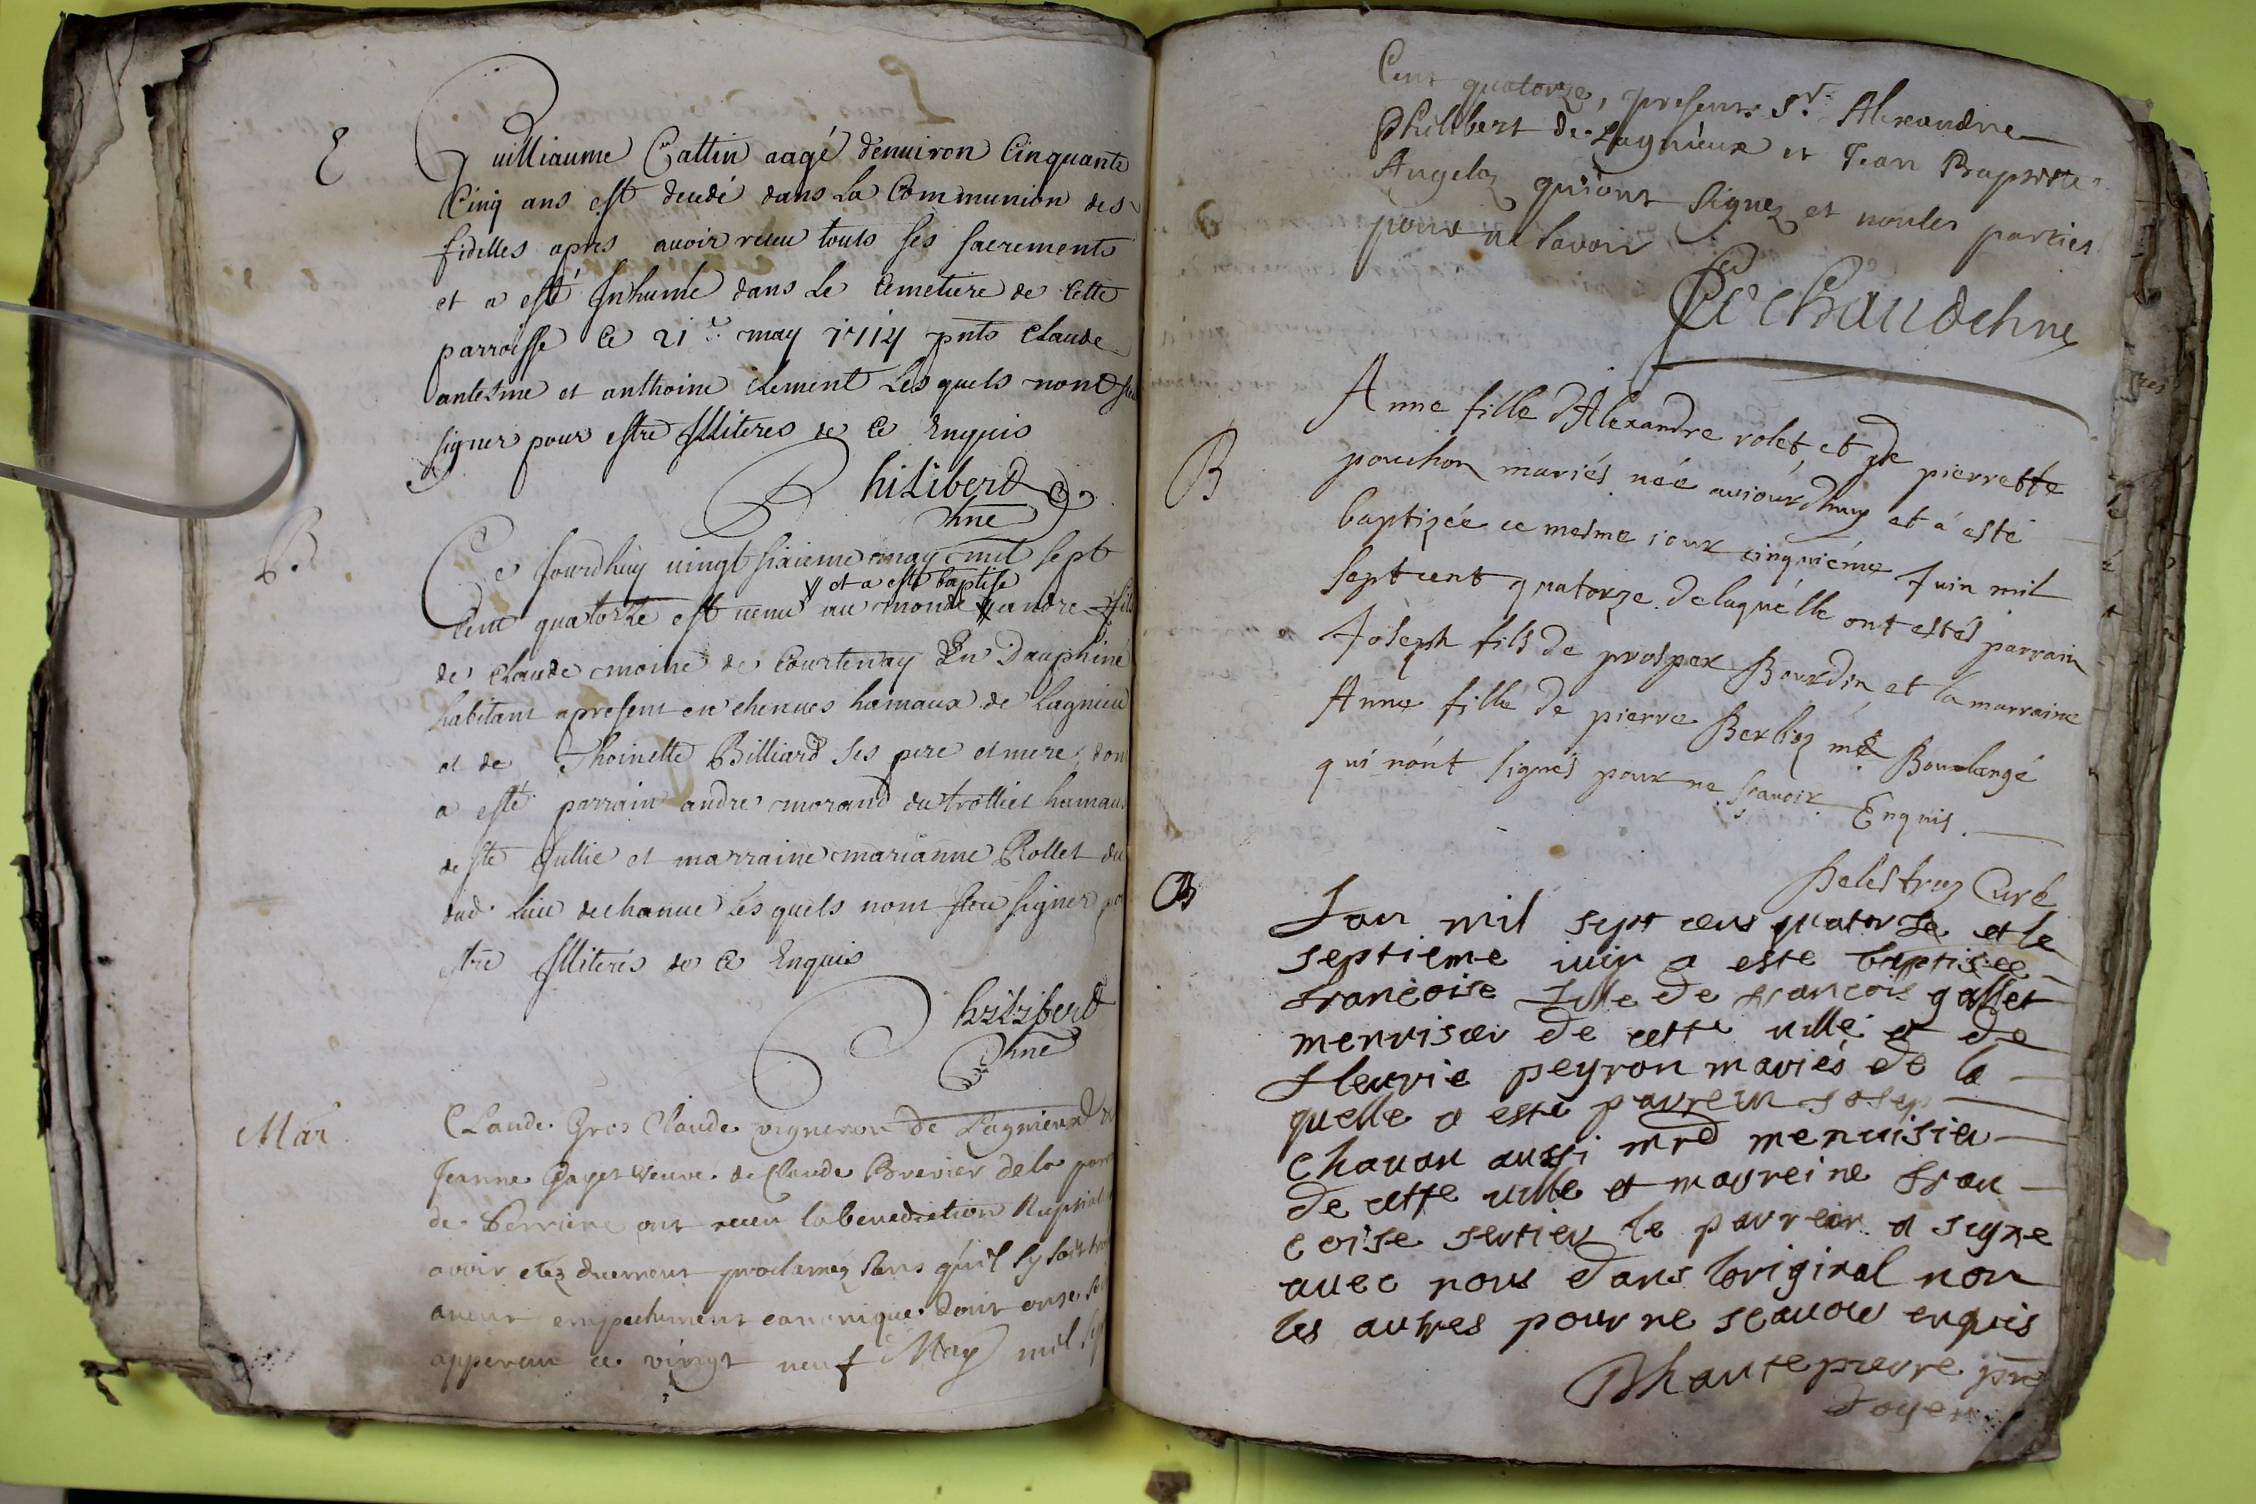 E
Guilliaume Cattin aagé denuiron Cinquante
Cinq ans est decedé dans La Communion des
fidelles apres auoir receu touts ses sacrements
et a esté Inhumé dans Le Cemetiere de Cette
parroisse Ce 21e may 1714 pnts Claude
antelme et anthoine clement Lesquels nont sceu
signer pour estre Illiteres de Ce Enquis
Philibert
B
Ce Jourdhuy uingt sixieme may mil sept
y et a esté baptise
Cent quatorze est uenu au monde andre fils
de Claude moine de Courtenay En Dauphiné
habitant apresent en chenues hamaux de Lagnieu
et de Thoinette Billiard ses pere et mere don
a esté parrain andre morand du trollier hamaux
de ste Jullie et marraine marianne Rollet du
dud. lieu de chanue Lesquels nont sceu signer po
estre Illiteres de Ce Enquis
Philibert
Mar.
Claude Gros Claude vigneron de Lagnieux et
Jeanne Gayet veuve de Claude Brevier de la parr
de Serriere ont receu la benediction Nuptiale
avoir etez duement proclamez sans qu'il sy soit
aucun empechement canonique
apperceu ce vingt neuf May mil sept
Cent quatorze, present Sr. Alexandre
Philibert de Lagnieux et Jean Baptiste
Angelo, qui ont signez et non les parties
pour ne savoir
B
Anne fille d'Alexandre rolet et de pierrette
pouchon mariés née auiourdhuy et a esté
baptizée ce mesme iour cinquiéme Juin mil
sept cent quatorze delaquelle ont estés parrain
Joseph fils de prosper Bourdin et la marraine
Anne fille de pierre Berlioz md Boulangé
qui nónt signés pour ne scauoir Enquis.
Delestruz Curé
B
Lan mil sept cens quatorse et le
septieme iuin a este baptisee
francoise fille de francois gallet
menuiser de cette uille et de
fleurie peyron mariés de la
quelle a esté parrein Josep
Chauan aussi mrd menuisier
de cette uille et marreine fran
coise sertier le parrein a signe
auec nous dans loriginal non
les autres pour ne scauoir enquis
Dhautepierre pre
doyen